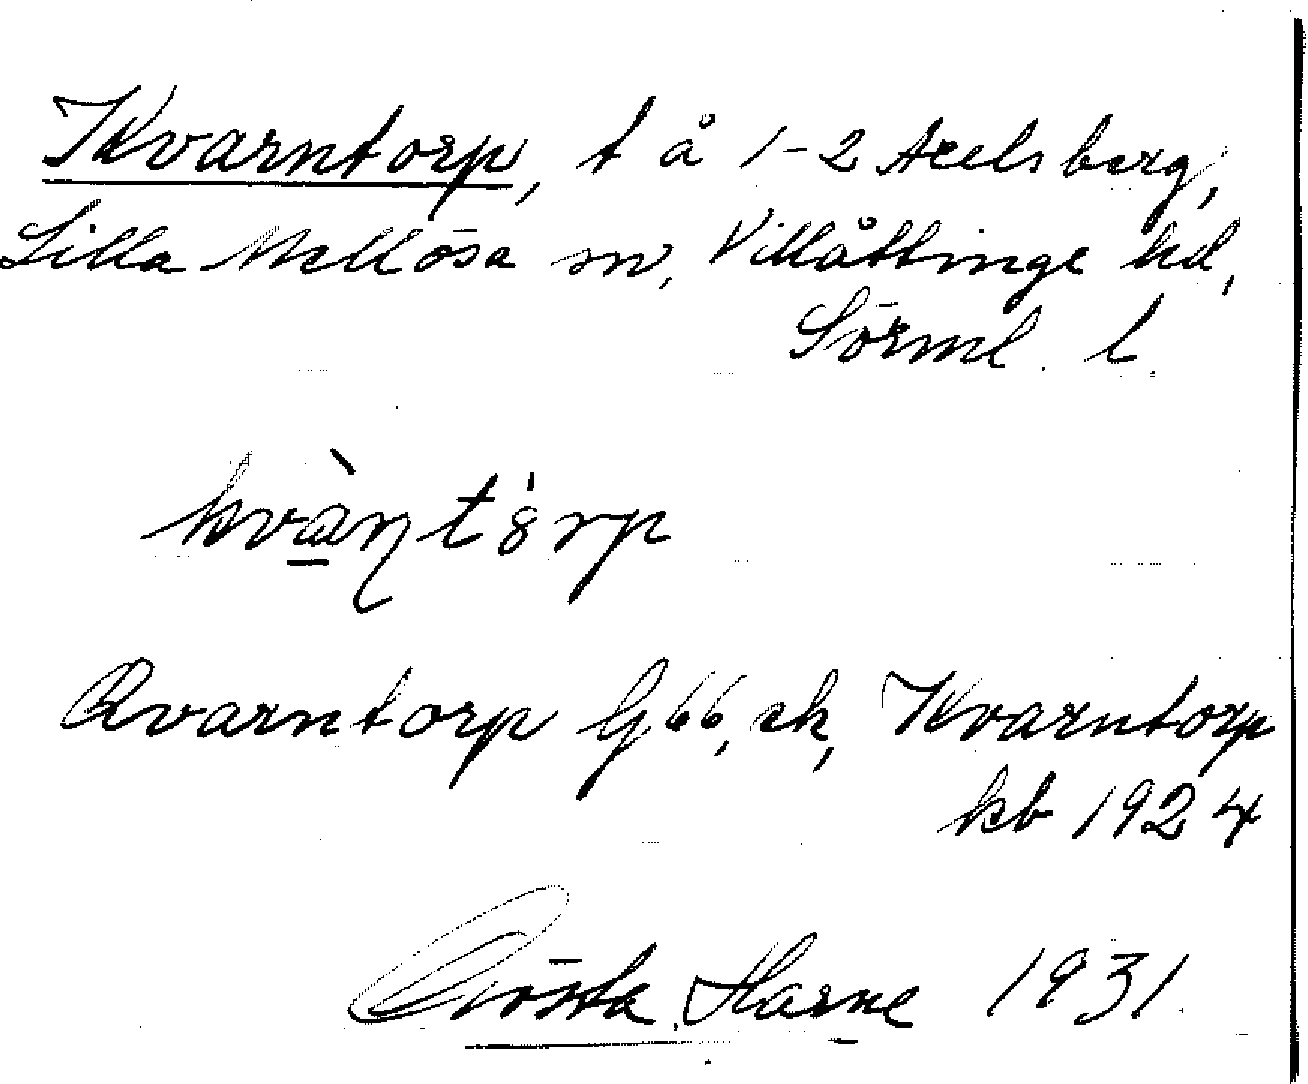 Kvarntorp, t å 1-2 Axelsberg,
Lilla Mellösa sn, Villåttinge hd,
Sörml. l.
kvàṇtórp
Qvarntorp G 66, ek, Kvarntorp
kb 1924
Gösta Harne 1931